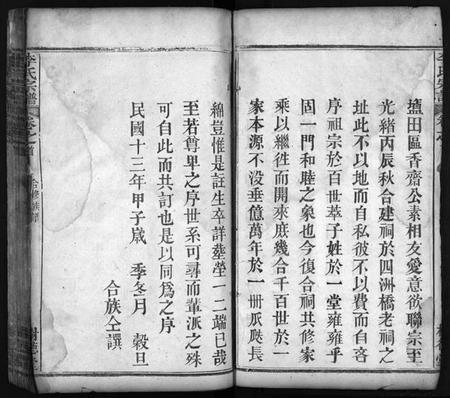 塩田區香齋公素相友愛意欲聯宗至
光緒丙辰秋合建祠於四洲橋老祠之
址此不以地而自私彼不以費而自吝
序祖宗於百世萃子姓於一堂雍雍乎
固一門和睦之象也今復合祠共修家
乘以繼徃而開來庶幾合千百世於一
家本源不没垂億萬年於一冊瓜瓞長
綿豈惟是註生卒詳葬塋一二端已哉
至若尊卑之序世系可尋而輩派之殊
可自此而共訂也是以同為之序
民國十三年甲子歲 季冬月 穀旦
合族仝譔
李氏宗譜
卷之首
合修族譜